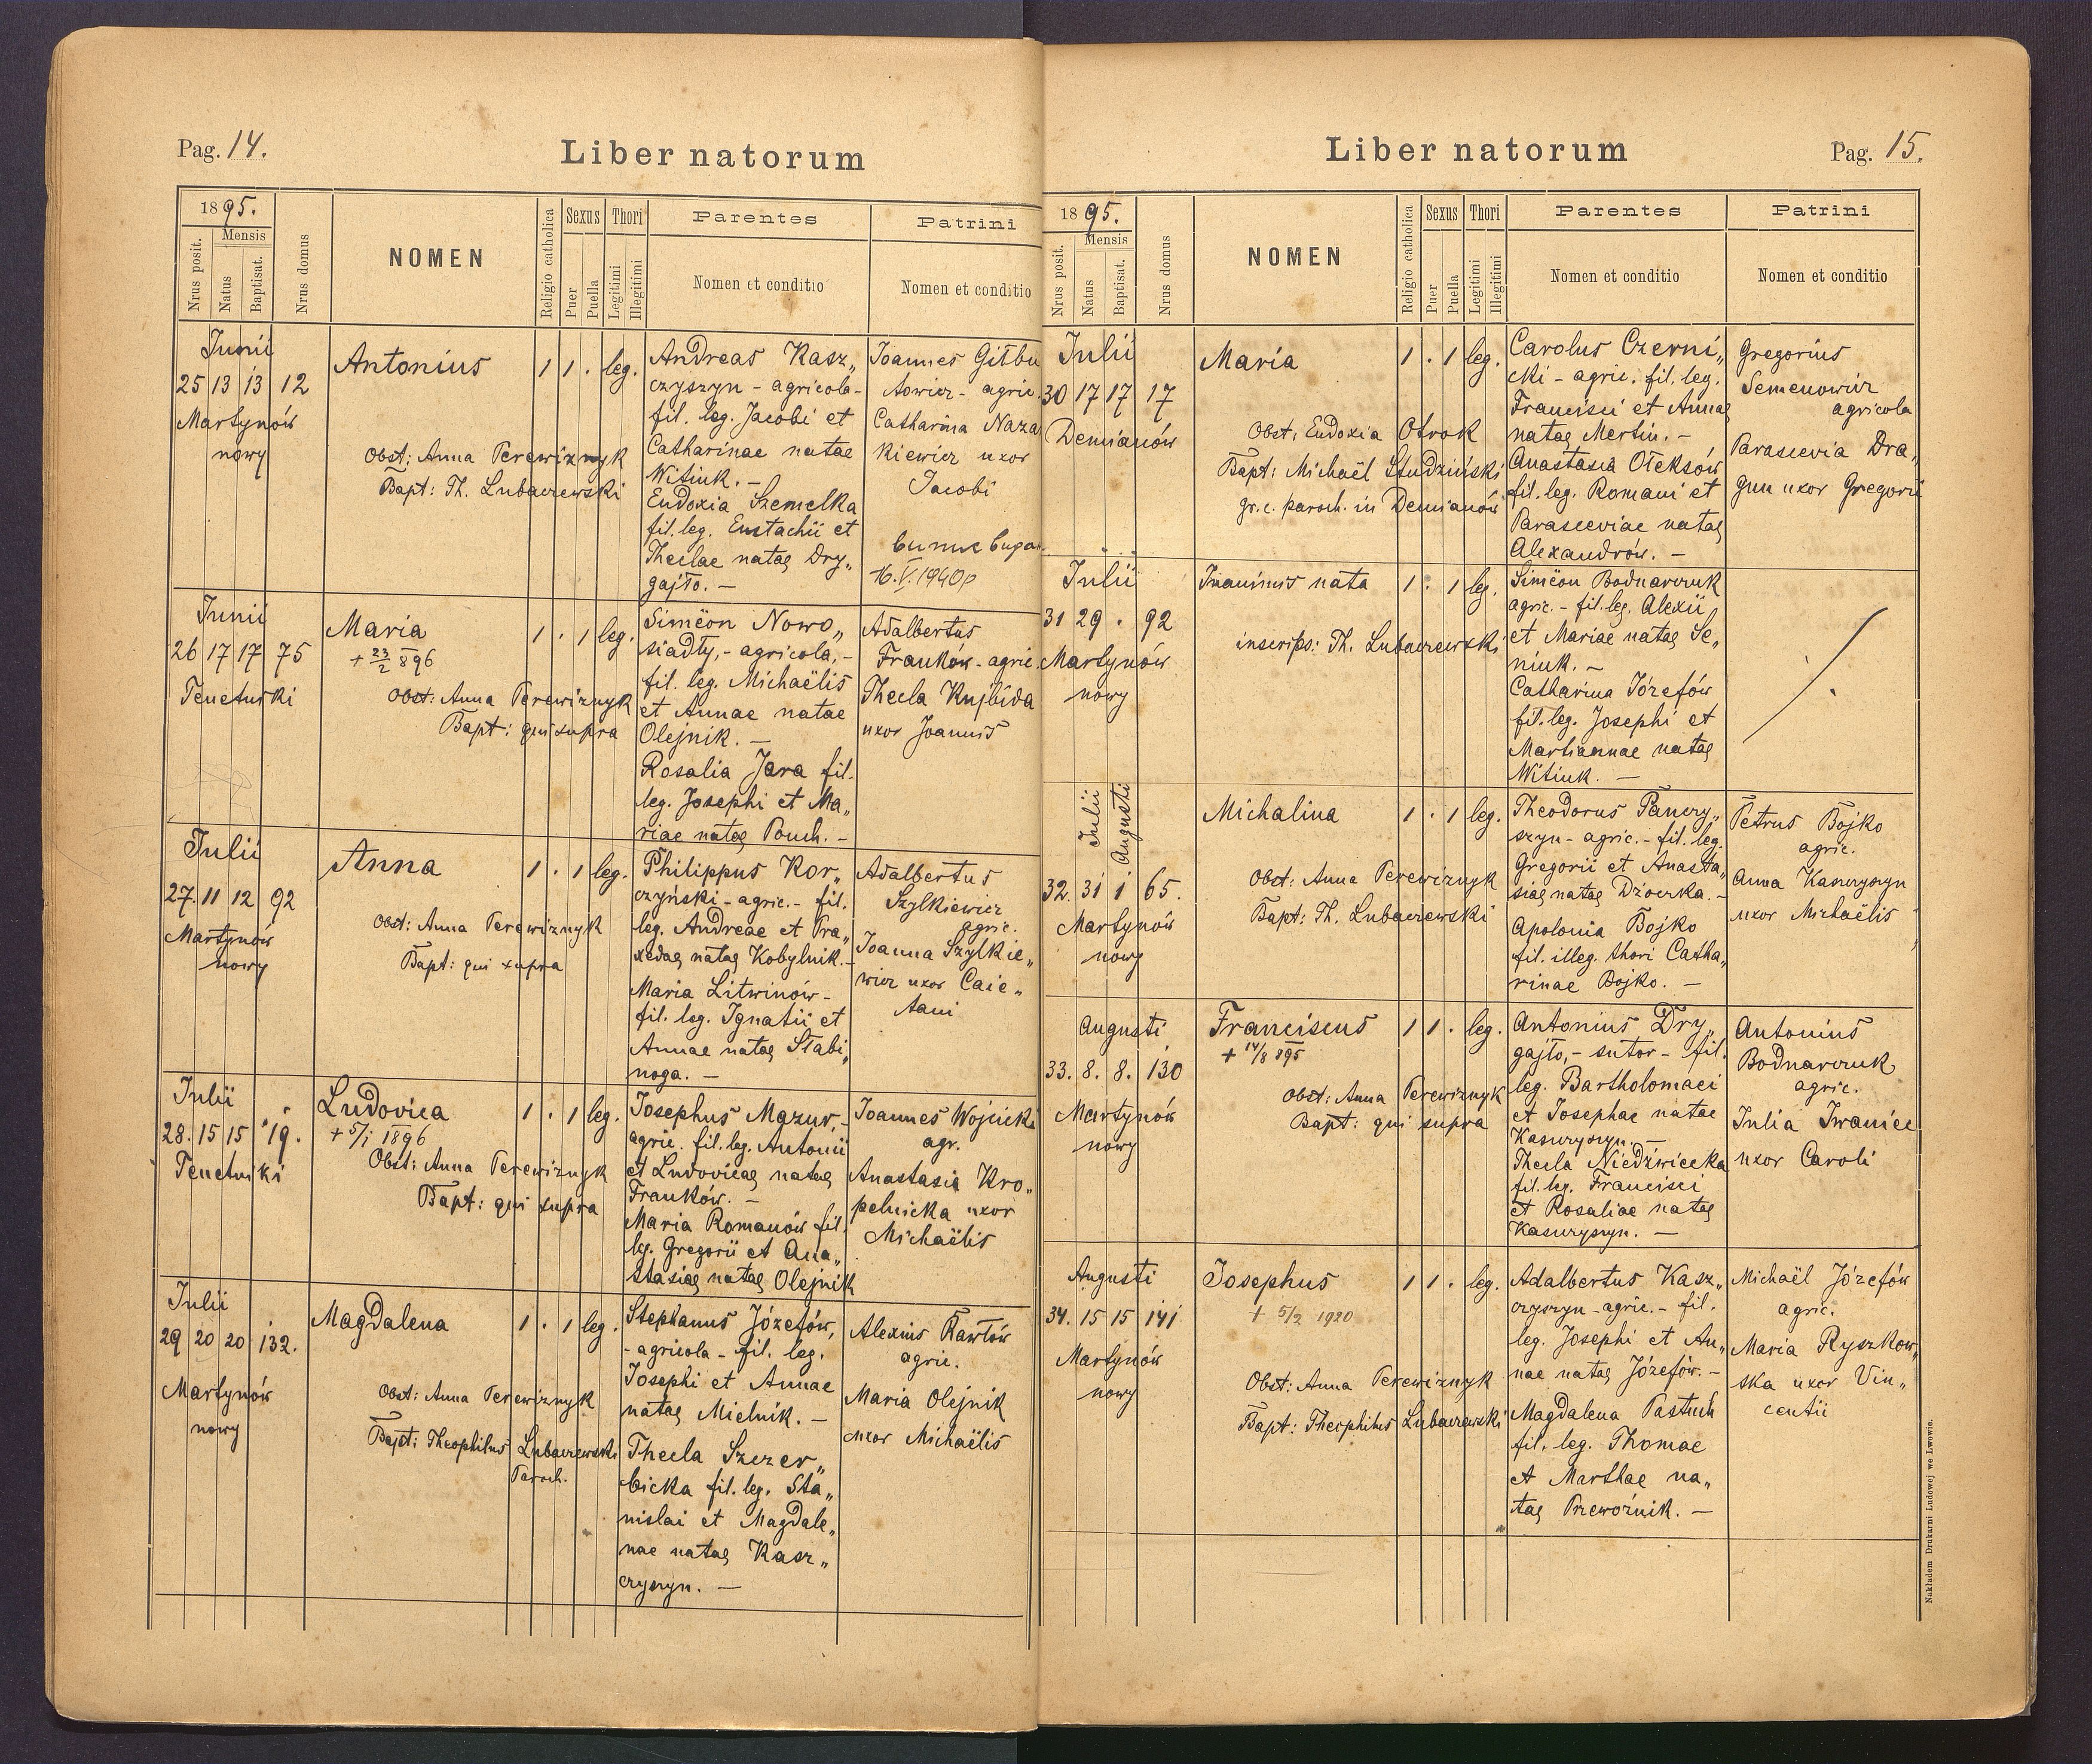 Pag. 14.
Liber natorum
1895.
Mensis
Nrus posit.
Natus
Baptisat.
Nrus domus
NOMEN
Religio catholica
Sexus
Puer
Puella
Thori
Legitimi
Illegitimi
Parentes
Nomen et conditio
Patrini
Nomen et conditio
Junii
25 13 13 12
Martynów
nowy
Antonius
Obst: Anna Perewiznyk
Bapt: Th. Lubaczewski
1 1 . leg.
Andreas Kasz„
czyszyn - agricola -
fil. leg. Jacobi et
Catharinae natae
Witiuk. -
Eudoxia Szemelka
fil. leg. Eustachii et
Theclae natae Dry„
gajło. -
Joannes Gitbu
towicz - agric.
Catharina Naza
kiewicz uxor
Jacobi
16.V.1940р
Junii
26 17 17 75
Tenetniki
Maria
+ 23/2 896
Obst: Anna Perewiznyk
Bapt: qui supra
1 . 1 leg.
Simëon Nowo„
siadły, - agricola, -
fil. leg. Michaëlis
et Annae natae
Olejnik. -
Rosalia Jara fil.
leg. Josephi et Ma„
riae natae Pouch. -
Adalbertus
Franków - agric.
Thecla Kujbida
uxor Joannis
Julii
27. 11 12 92
Martynów
nowy
Anna
Obst: Anna Perewiznyk
Bapt: qui supra
1 . 1 leg.
Philippus Kor„
czyński - agric. - fil.
leg. Andreae et Pra„
xedae natae Kobylnik. -
Maria Litwinów -
fil. leg. Ignatii et
Annae natae Słabi„
noga. -
Adalbertus
Szylkiewicz
agric.
Joanna Szylkie„
wicz uxor Caie„
tani
Julii
28. 15 15 19.
Tenetniki
Ludovica
+ 5/1 1896
Obst: Anna Perewiznyk
Bapt: qui supra
1 . 1 leg.
Josephus Mazur, -
agric. fil. leg. Antonii
et Ludovicae natae
Franków. -
Maria Romanów fil.
leg. Gregorii et Ana„
stasiae natae Olejnik
Joannes Wojcicki
agr.
Anastasia Kro„
pelnicka uxor
Michaëlis
Julii
29 20 20 132.
Martynów
nowy
Magdalena
Obst: Anna Perewiznyk
Bapt: Theophilus Lubaczewski
Paroch.
1 . 1 leg.
Stephanus Józefów,
- agricola - fil. leg.
Josephi et Annae
natae Mielnik. -
Thecla Szczer„
bicka fil. leg. Sta„
nislai et Magdale„
nae natae Kasz„
czyszyn. -
Alexius Pawłów
agric.
Maria Olejnik
uxor Michaëlis
Liber natorum
Pag. 15.
1895.
Mensis
Nrus posit.
Natus
Baptisat.
Nrus domus
NOMEN
Religio catholica
Sexus
Puer
Puella
Thori
Legitimi
Illegitimi
Parentes
Nomen et conditio
Patrini
Nomen et conditio
Julii
30 17 17 17
Demianów
Maria
Obst: Eudoxia Otrok
Bapt: Michaël Studziński
gr. c. paroch. in Demianów
1 . 1 leg.
Carolus Czerni„
cki - agric. fil. leg.
Francisci et Annae
natae Mertin. -
Anastasia Oleksów
fil. leg. Romani et
Parasceviae natae
Alexandrów. -
Gregorius
Semenowicz
agricola
Parascevia Dra„
gun uxor Gregorii
Julii
31 29 . 92
Martynów
nowy
Inanimis nata
inscrips: Th. Lubaczewski
1 . 1 leg.
Simëon Bodnarczuk
agric. - fil. leg. Alexii
et Mariae natae Se„
niuk. -
Catharina Józefów
fil. leg. Josephi et
Mariannae natae
Witiuk. -
Julii
Augusti
32. 31 1 65.
Martynów
nowy
Michalina
Obst: Anna Perewiznyk
Bapt: Th. Lubaczewski
1 . 1 leg.
Theodorus Panczy„
szyn - agric. - fil. leg.
Gregorii et Anasta„
siae natae Dżoczka. -
Apolonia Bojko
fil. illeg. thori Catha„
rinae Bojko. -
Petrus Bojko
agric.
Anna Kasczyszyn
uxor Michaëlis
Augusti
33. 8. 8. 130
Martynów
nowy
Franciscus
+ 14/8 895
Obst: Anna Perewiznyk
Bapt: qui supra
1 1 . leg.
Antonius Dry„
gajło, - sutor - fil.
leg. Bartholomaei
et Josephae natae
Kasczyszyn. -
Thecla Niedźwiecka
fil. leg. Francisci
et Rosaliae natae
Kasczyszyn. -
Antonius
Bodnarczuk
agric.
Julia Iwaniec
uxor Caroli
Augusti
34. 15 15 141
Martynów
nowy
Josephus
+ 5/2 1920
Obst: Anna Perewiznyk
Bapt: Theophilus Lubaczewski
1 1 . leg.
Adalbertus Kasz„
czyszyn - agric. - fil.
leg. Josephi et An„
nae natae Józefów. -
Magdalena Pastuch
fil. leg. Thomae
et Marthae na„
tae Przewoźnik. -
Michaël Józefów
agric.
Maria Ryszkow„
ska uxor Vin„
centii
Nakładem Drukarni Ludowej we Lwowie.